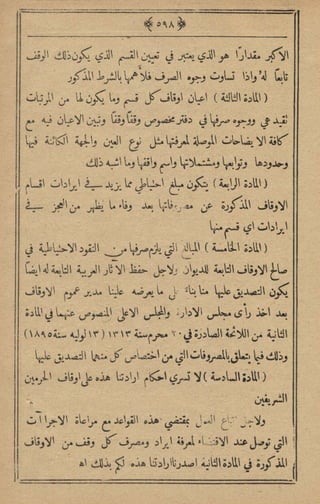 ﴿ ٥٩٨ ﴾
الاكبر مقدارًا هو الذي يعتبر في تعيين القسم الذي يكون ذلك الوقف
تابعًا له واذا تساوت وجوه الصرف فلأهمها بالشرط المذكور
( المادة الثالثة ) اعيان اوقاف كل قسم وما يكون لها من المرتبات
تقيد هي ووجوه صرفها في دفتر مخصوص وقفًا وقفًا وتبين الاعيان فيه مع
كافة الايضاحات الموصلة لمعرفتها مثل نوع العين والجهة الكائنة فيها
وحدودها وتوابعها ومشتملاتها واسم واقفها وما اشبه ذلك
( المادة الرابعة ) يتكون مبلغ احتياطي مما يزيد في ايرادات اقسام
الاوقاف المذكورة عن مصروفاتها بعد وفاء ما يظهر من العجز في
ايرادات اي قسم منها
( المادة الخامسة ) المبالغ التي يلزم صرفها من النقود الاحتياطية في
صالح الاوقاف التابعة للديوان ولاجل حفظ الاثار العربية التابعة له ايضًا
يكون التصديق عليها منا بناء على ما يعرضه علينا مدير عموم الاوقاف
بعد اخذ رأي مجلس الادارة والمجلس الاعلى المنصوص عنهما في المادة
الثانية من اللائحة الصادرة في ٢٠ محرم سنة ١٣١٣ ( ١٣ لوليه سنة ١٨٩٥ )
وذلك فيما يتعلق بالمصروفات التي من اختصاص كل منهما التصديق عليها
( المادة السادسة ) لا تسري احكام ارادتنا هذه على اوقاف الحرمين
الشريفين
ولاجل اتباع العمل بمقتضى هذه القواعد مع مراعاة الاجراآت
التي توصل عند الاقتضاء لمعرفة ايراد ومصرف كل وقف من الاوقاف
المذكورة في المادة الثانية اصدرنا ارادتنا هذه لكم بذلك اه